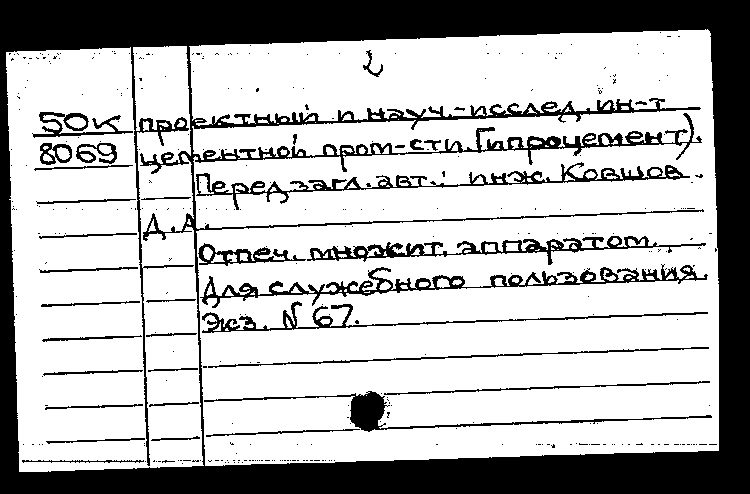 2
50К проектный и науч.-исслед. ин-т
8069 цементной пром-сти. Гипроцемент).
Перед загл. авт.: инж. Ковшов
Д.А.
Отпеч. множит. аппаратом.
Для служебного пользования.
Экз. № 67.